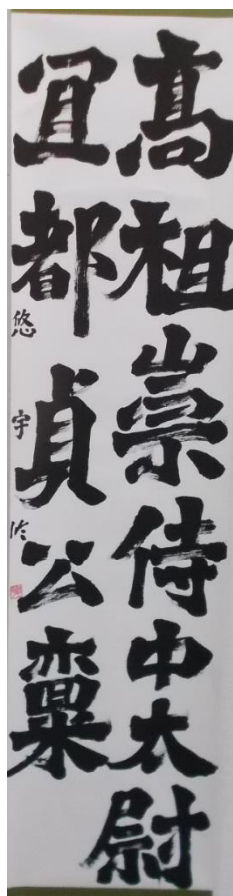 高祖崇侍中太尉
宜都貞公稟
悠宇